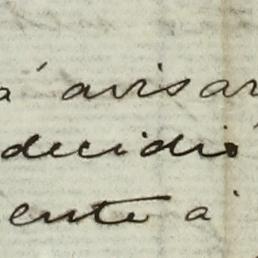 á avisar
decidió
ente á